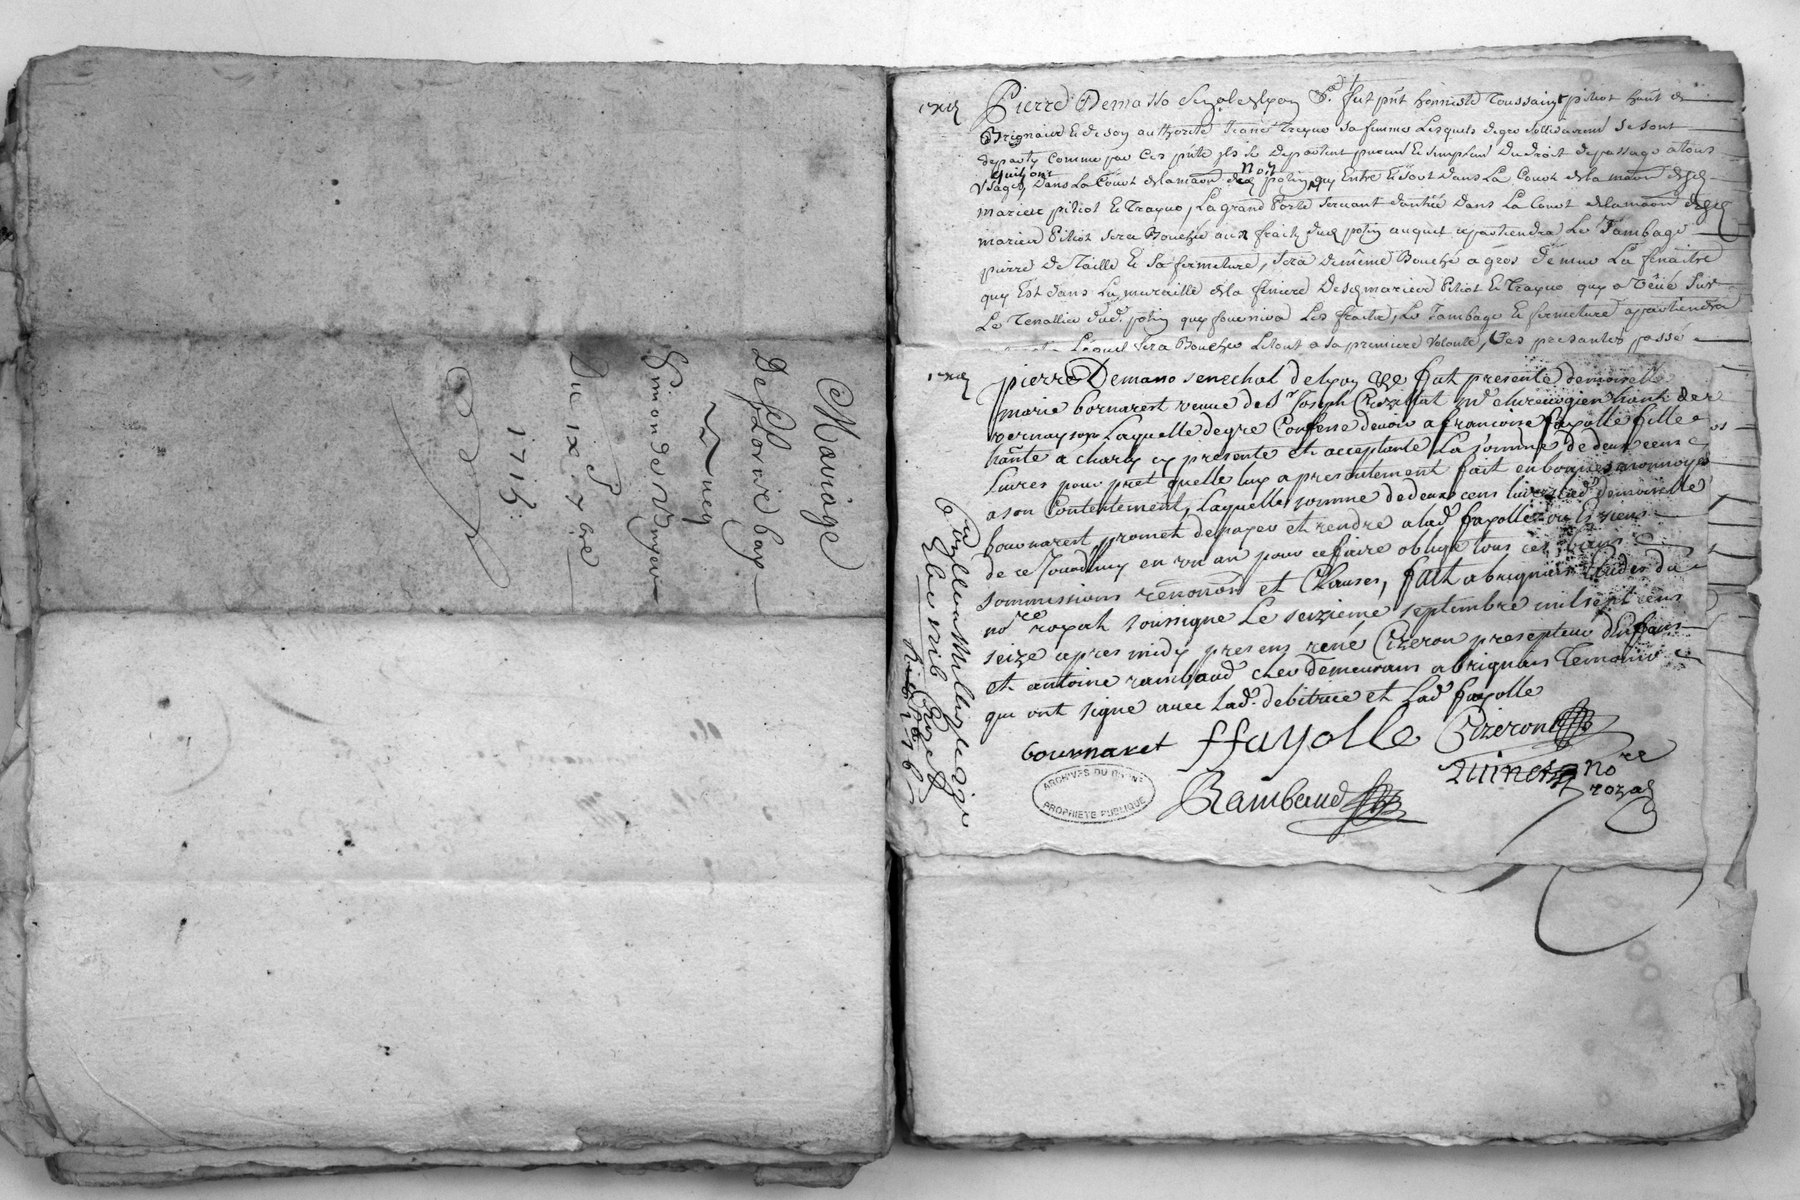 Mariage
De f. Lorire bay
Simonde Vinyer
Du ix e 7bre
1715
Pierre Demasso Senechal de lyon Sr. fut pnt honneste Toussaint pitiot hant de
Brignais & de son authorité Jeane Trayno sa femme Lesquels de gre sollidairemt se sont
departy comme par ces pnte ils se departent puremt & simplemt Du droit de passage a tous
usages quils ont dans La Court de la maon de potin, quy Entre & sort dans La Court de la maon desd
mariez pitiot & Trayno, La grand Porte servant dentrée Dans La Court de la maon desd
mariez Pitiot sera Bouchée aux fraitz dud potin auquel apartiendra Le Jambage
pierre De Taille & Sa fermeture, sera de même Bouché a gros de mur La fenaitre
quy Est dans La muraille de la feniere Desd mariez Pitiot & Trayno quy a Veüe sur
Le Tenallier dud. potin quy fournira Les fraitz, Le Jambage & fermeture apartiendra
Lequel sera Boucher Le tout a sa premiere Volonté, Ces presantes passé
pierre Demaso senechal de lyon &c fut presente demoiselle
marie bornarest veuve de Sr Joseph Crozittat Me chirurgien hant de
vernayson Laquelle de gre Confesse devoir a francoise fayolle fille
hante a charly cy presente et acceptante La somme de deux cens
Livres pour pret quelle luy a presentement fait en bonnes monnoyes
a son Contentement, Laquelle somme de deux cens livres Lad. demoiselle
bournarest promet de payer et rendre a lad fayolle ou Es siens
de ce Jourdhuy en un an pour ce faire oblige tous ces biens
sommissions renonons et Clauses, fait a brignais Etudes du
nore royal soussigne Le seizieme septembre mil sept cens
seize apres midy presens rené Cizeron presepteur d'Enfans
et antoine rambaud cher demeurans a brignais Temoins
qui ont signe avec Lad. debitrice et Lad fayolle
bournaret ffayolle Cizeron
Rambaud
nore
royal
ARCHIVES DU RHONE
PROPRIETE PUBLIQUE